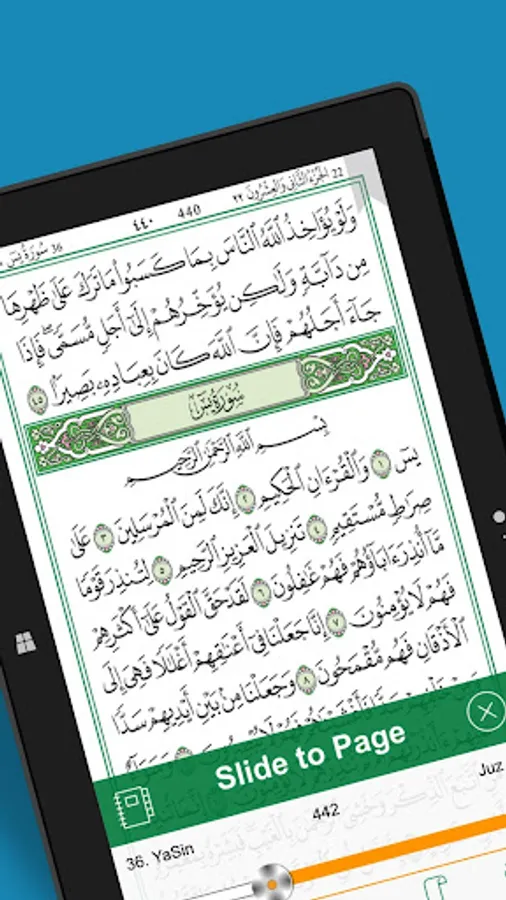 22 الجزء الثاني والعشرون ٢٢
٤٤٠ 440
36 سورة يس
وَلَوْ يُؤَاخِذُ اللَّهُ النَّاسَ بِمَا كَسَبُوا مَا تَرَكَ عَلَىٰ ظَهْرِهَا
مِن دَآبَّةٍ وَلَٰكِن يُؤَخِّرُهُمْ إِلَىٰ أَجَلٍ مُّسَمًّى فَإِذَا
جَآءَ أَجَلُهُمْ فَإِنَّ اللَّهَ كَانَ بِعِبَادِهِ بَصِيرًا ٤٥
سُورَةُ يسٓ
بِسْمِ اللَّهِ الرَّحْمَٰنِ الرَّحِيمِ
يسٓ ١ وَالْقُرْءَانِ الْحَكِيمِ ٢ إِنَّكَ لَمِنَ الْمُرْسَلِينَ ٣ عَلَىٰ
صِرَٰطٍ مُّسْتَقِيمٍ ٤ تَنزِيلَ الْعَزِيزِ الرَّحِيمِ ٥ لِتُنذِرَ قَوْمًا
مَّآ أُنذِرَ ءَابَآؤُهُمْ فَهُمْ غَٰفِلُونَ ٦ لَقَدْ حَقَّ الْقَوْلُ عَلَىٰٓ أَكْثَرِهِمْ
فَهُمْ لَا يُؤْمِنُونَ ٧ إِنَّا جَعَلْنَا فِىٓ أَعْنَٰقِهِمْ أَغْلَٰلًا فَهِىَ إِلَى
الْأَذْقَانِ فَهُم مُّقْمَحُونَ ٨ وَجَعَلْنَا مِنۢ بَيْنِ أَيْدِيهِمْ سَدًّا
Slide to Page
442
Juz
36. YaSin